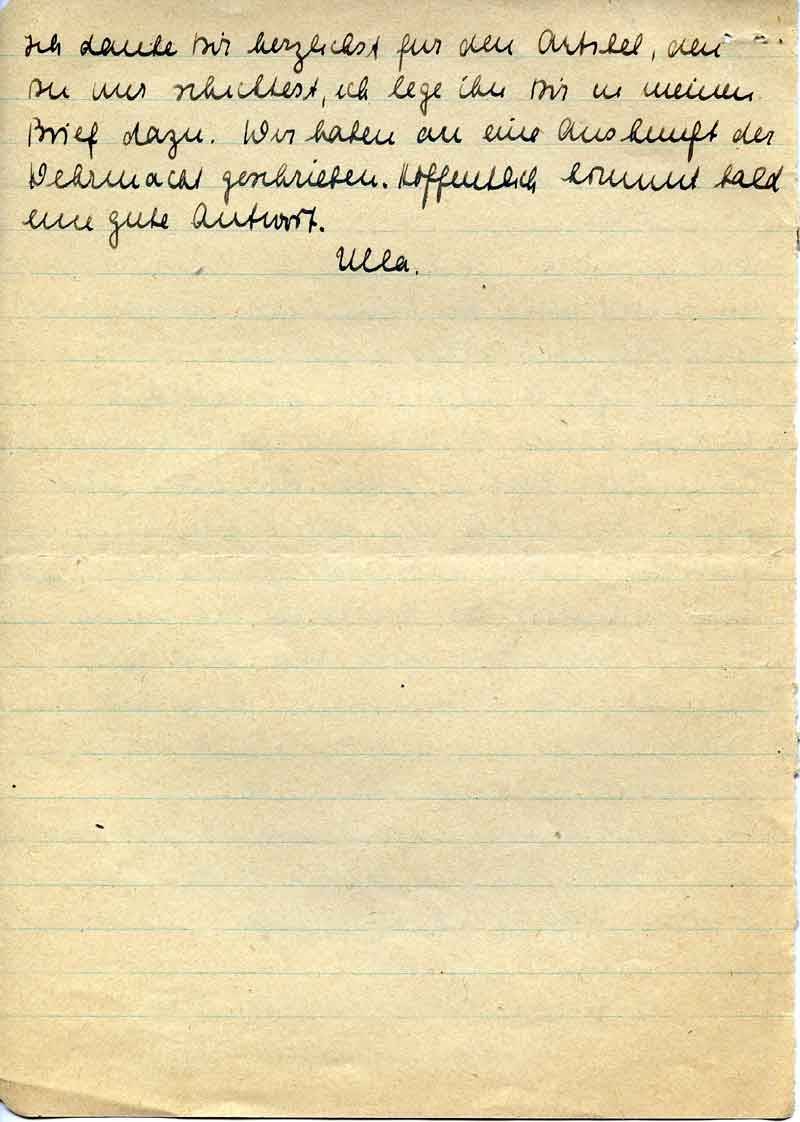 Ich danke Dir herzlichst für den Artikel, den
Du mir schicktest, ich lege ihn Dir in meinen
Brief dazu. Wir haben an eine Auskunft der
Wehrmacht geschrieben. Hoffentlich kommt bald
eine gute Antwort.
Ulla.